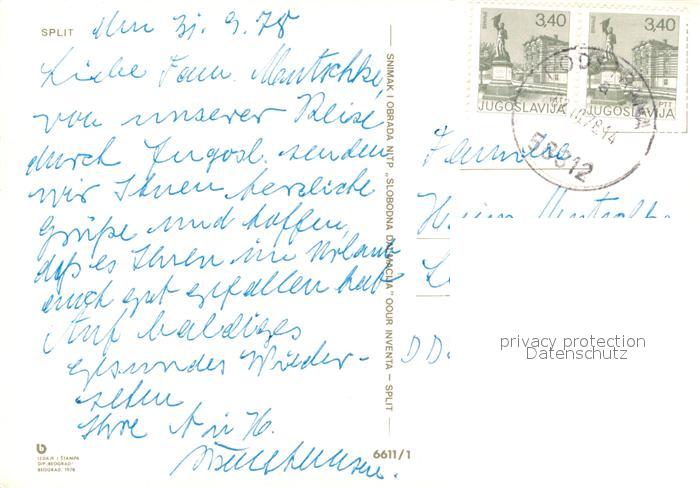 SPLIT
den 31. 9. 78
Liebe Fam. Mautschke,
von unserer Reise
durch Jugosl. senden
wir Ihnen herzliche
Grüße und hoffen,
daß es Ihnen im Urlaub
auch gut gefallen hat
Auf baldiges
gesundes Wieder-
sehen
Ihre A in H.
IZDAJE I ŠTAMPA
DIP „BEOGRAD"
BEOGRAD, 1978
6611/1
SNIMAK I OBRADA NITP „SLOBODNA DALMACIJA" OOUR INVENTA – SPLIT
3,40 3,40
JUGOSLAVIJA JUGOSLAVIJA
PTT
58312
Familie
Heinz
DD
privacy protection
Datenschutz